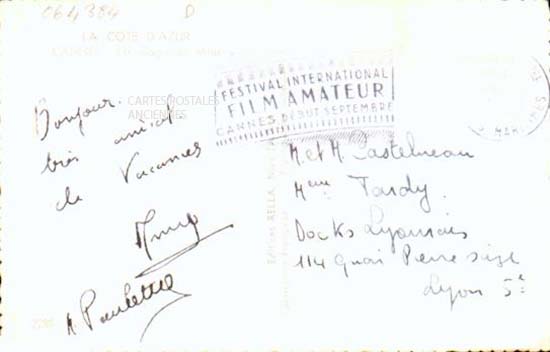 064384 D
LA COTE D'AZUR
CANNES
CARTES POSTALES
ANCIENNES
FESTIVAL INTERNATIONAL
FILM AMATEUR
CANNES DÉBUT SEPTEMBRE
Bonjour
très amical
de Vacances
Paulette
Editions RELLA
M. et M. Castelneau
Mme Tardy.
Docks Lyonnais
114 Quai Pierre Size
Lyon 5e